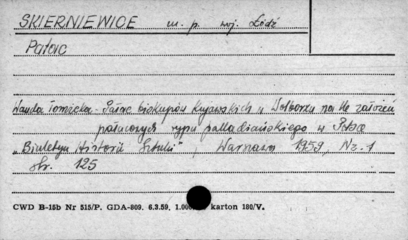 SKIERNIEWICE m. p. woj. Łódź
Pałac
Wanda Tomicka - Pałac biskupów kujawskich w Wolborzu na tle założeń
pałacowych typu palladiańskiego w Polsce
„Biuletyn Historii Sztuki", Warszawa 1959, Nr. 1
str. 125
CWD B-15b Nr 515/P. GDA-809. 6.3.59. karton 180/V.